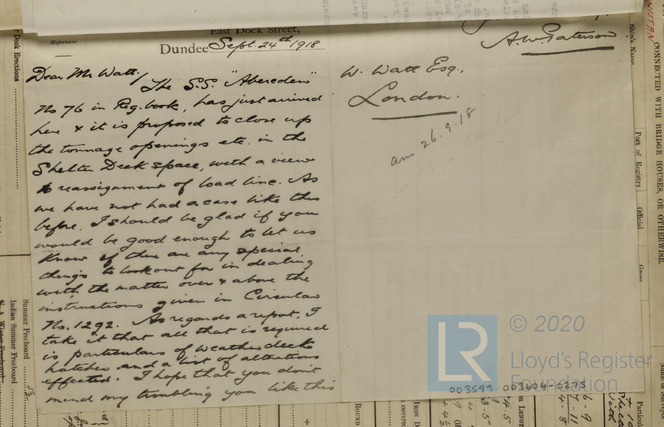 East Dock Street,
Dundee Sept. 24th 1918
Dear Mr Watt,
The S.S. "Aberdeen"
No 76 in Reg. book, has just arrived
here & it is proposed to close up
the tonnage openings etc. in the
Shelter Deck space, with a view
to reassignment of load line. As
we have not had a case like this
before, I should be glad if you
would be good enough to let us
know if there are any special
things to look out for in dealing
with the matter over & above the
instructions given in Circular
No. 1292. As regards a report, I
take it that all that is required
is particulars of weather decks
hatches and a list of alterations
effected. I hope that you don't
mind my troubling you like this
A.W. Paterson
W. Watt Esq.,
London.
ans 26.9.18
Ship's Name
Port of Registry
Official
CONNECTED WITH BRIDGE HOUSES, OR OTHERWISE
Deck Erections
Reference
Summer Freeboard
Indian Summer Freeboard
LR
© 2020
Lloyd's Register
Foundation
003599-003604-0275